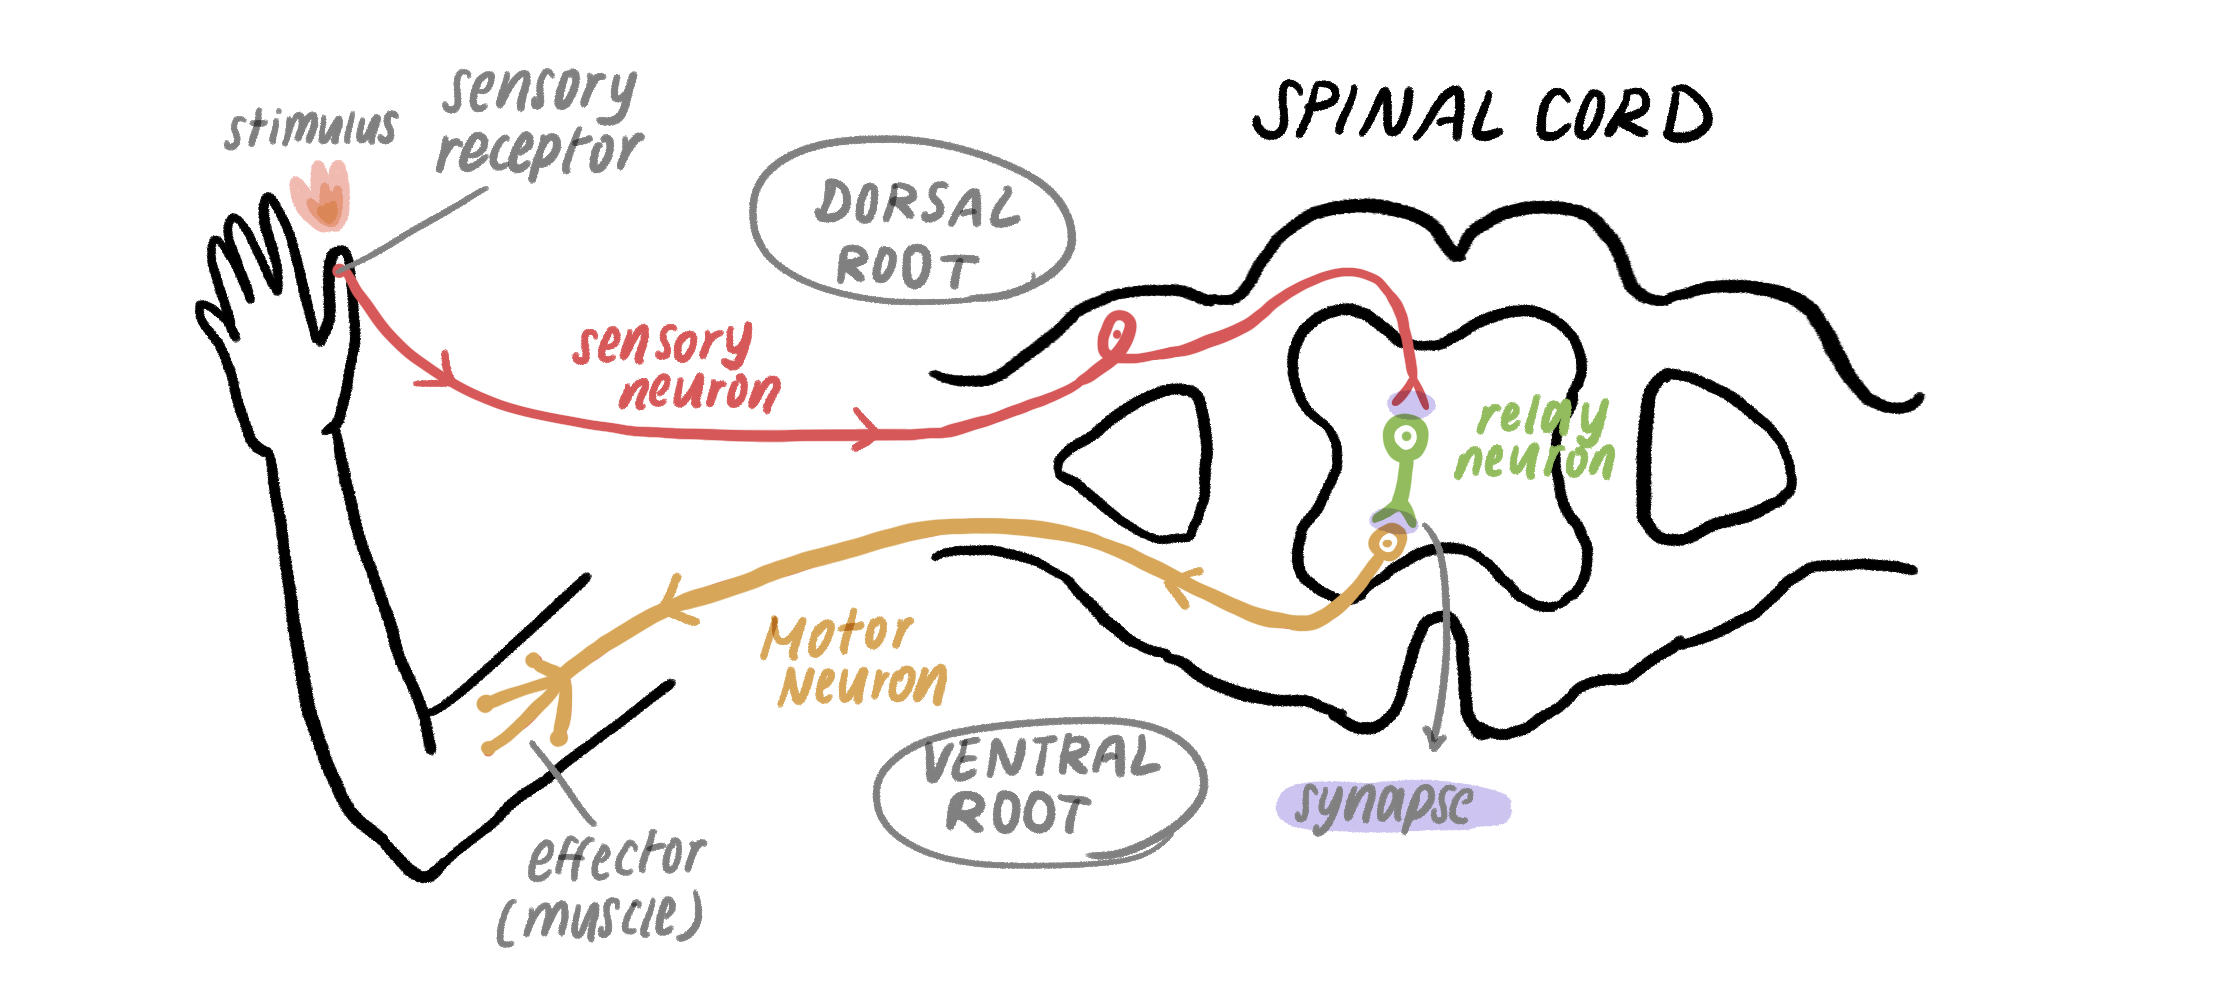 stimulus
sensory
receptor
DORSAL
ROOT
SPINAL CORD
sensory
neuron
relay
neuron
Motor
Neuron
VENTRAL
ROOT
synapse
effector
(muscle)